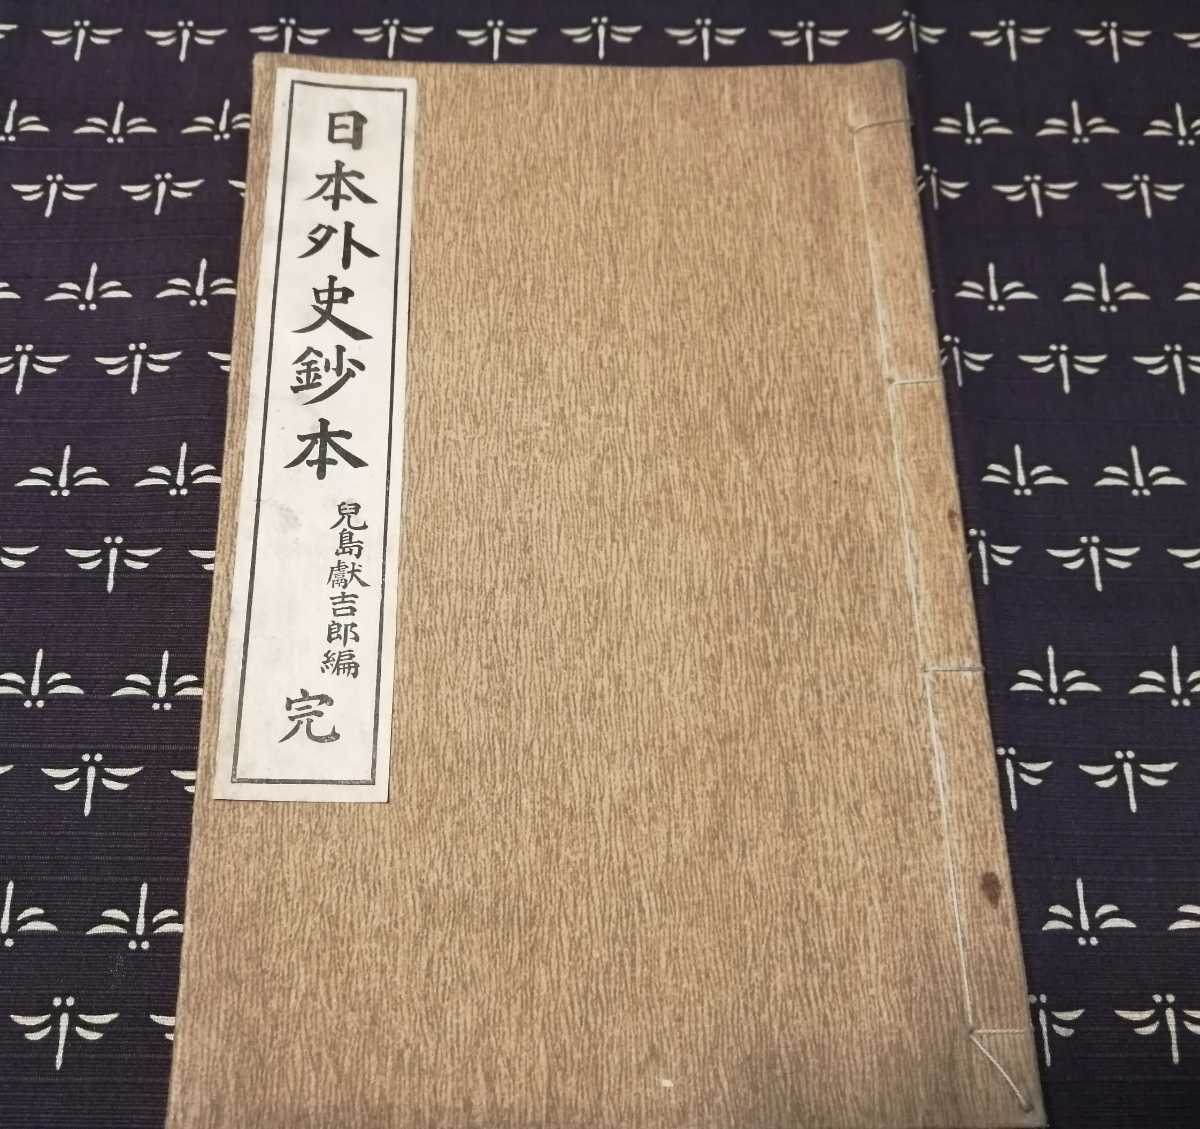 日本外史鈔本
兒島獻吉郎編
完